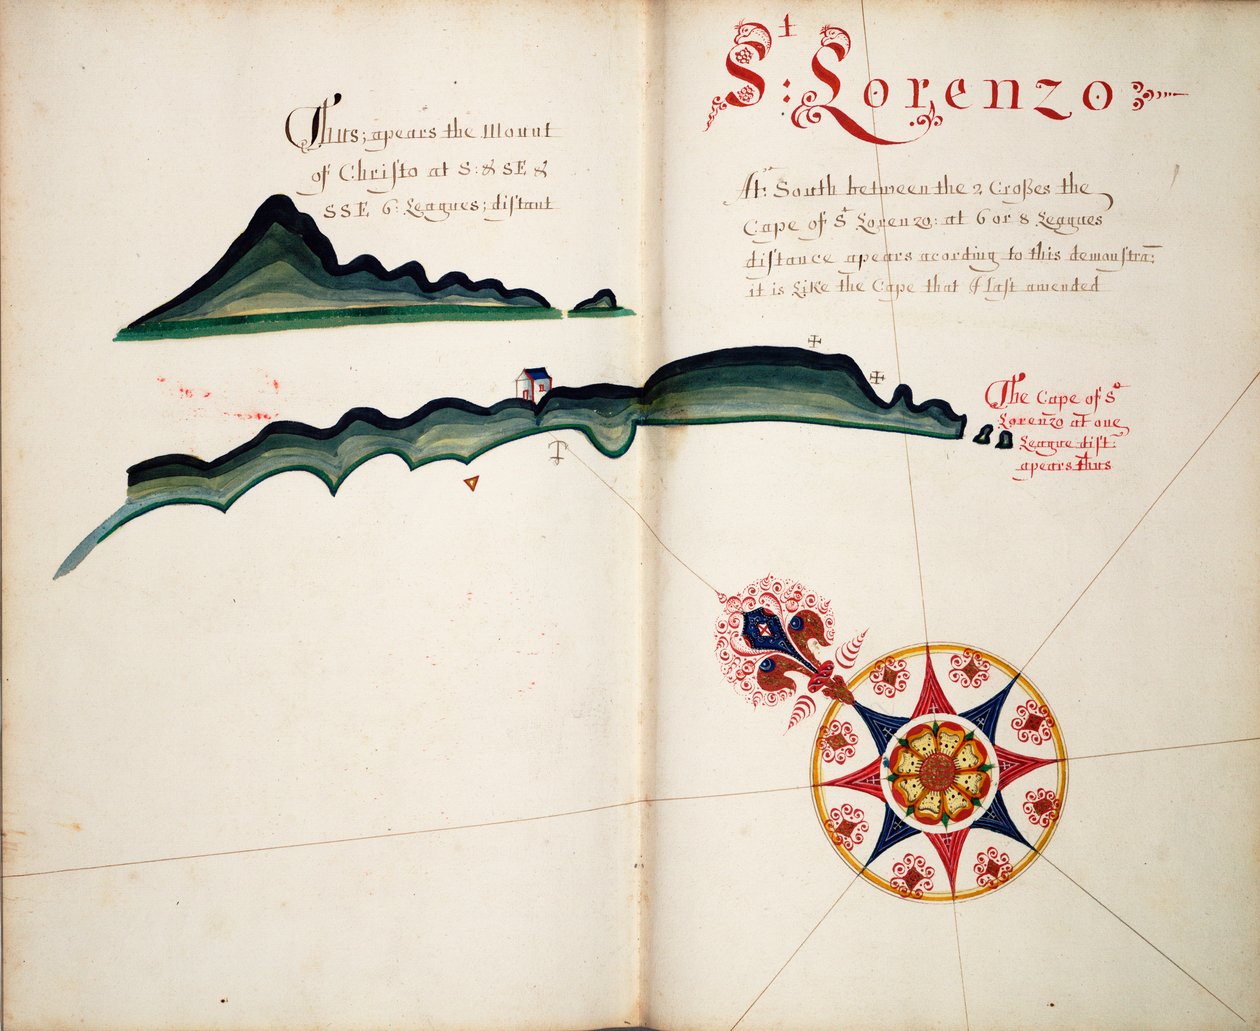 Thus; apears the Mount
of Christo at S: & SE &
SSE 6: Leagues; distant
St: Lorenzo:
At: South between the 2 Crosses the
Cape of St Lorenzo: at 6 or 8 Leagues
distance apears acording to this demonstra:
it is Like the Cape that I last amended
The Cape of St
Lorenzo at one
League dist
apears thus